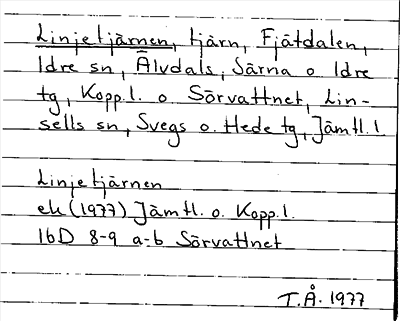 Linjetjärnen, tjärn, Fjätdalen,
Idre sn, Älvdals, Särna o. Idre
tg, Kopp.l. o Sörvattnet, Lin-
sells sn, Svegs o. Hede tg, Jämtl. l
Linjetjärnen
ek (1977) Jämtl. o. Kopp.l.
16D 8-9 a-b Sörvattnet
T.Å. 1977